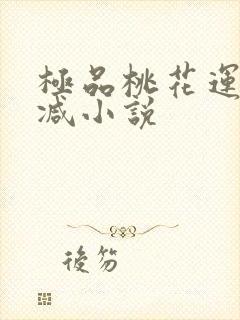 極品桃花運
减小説
後笏